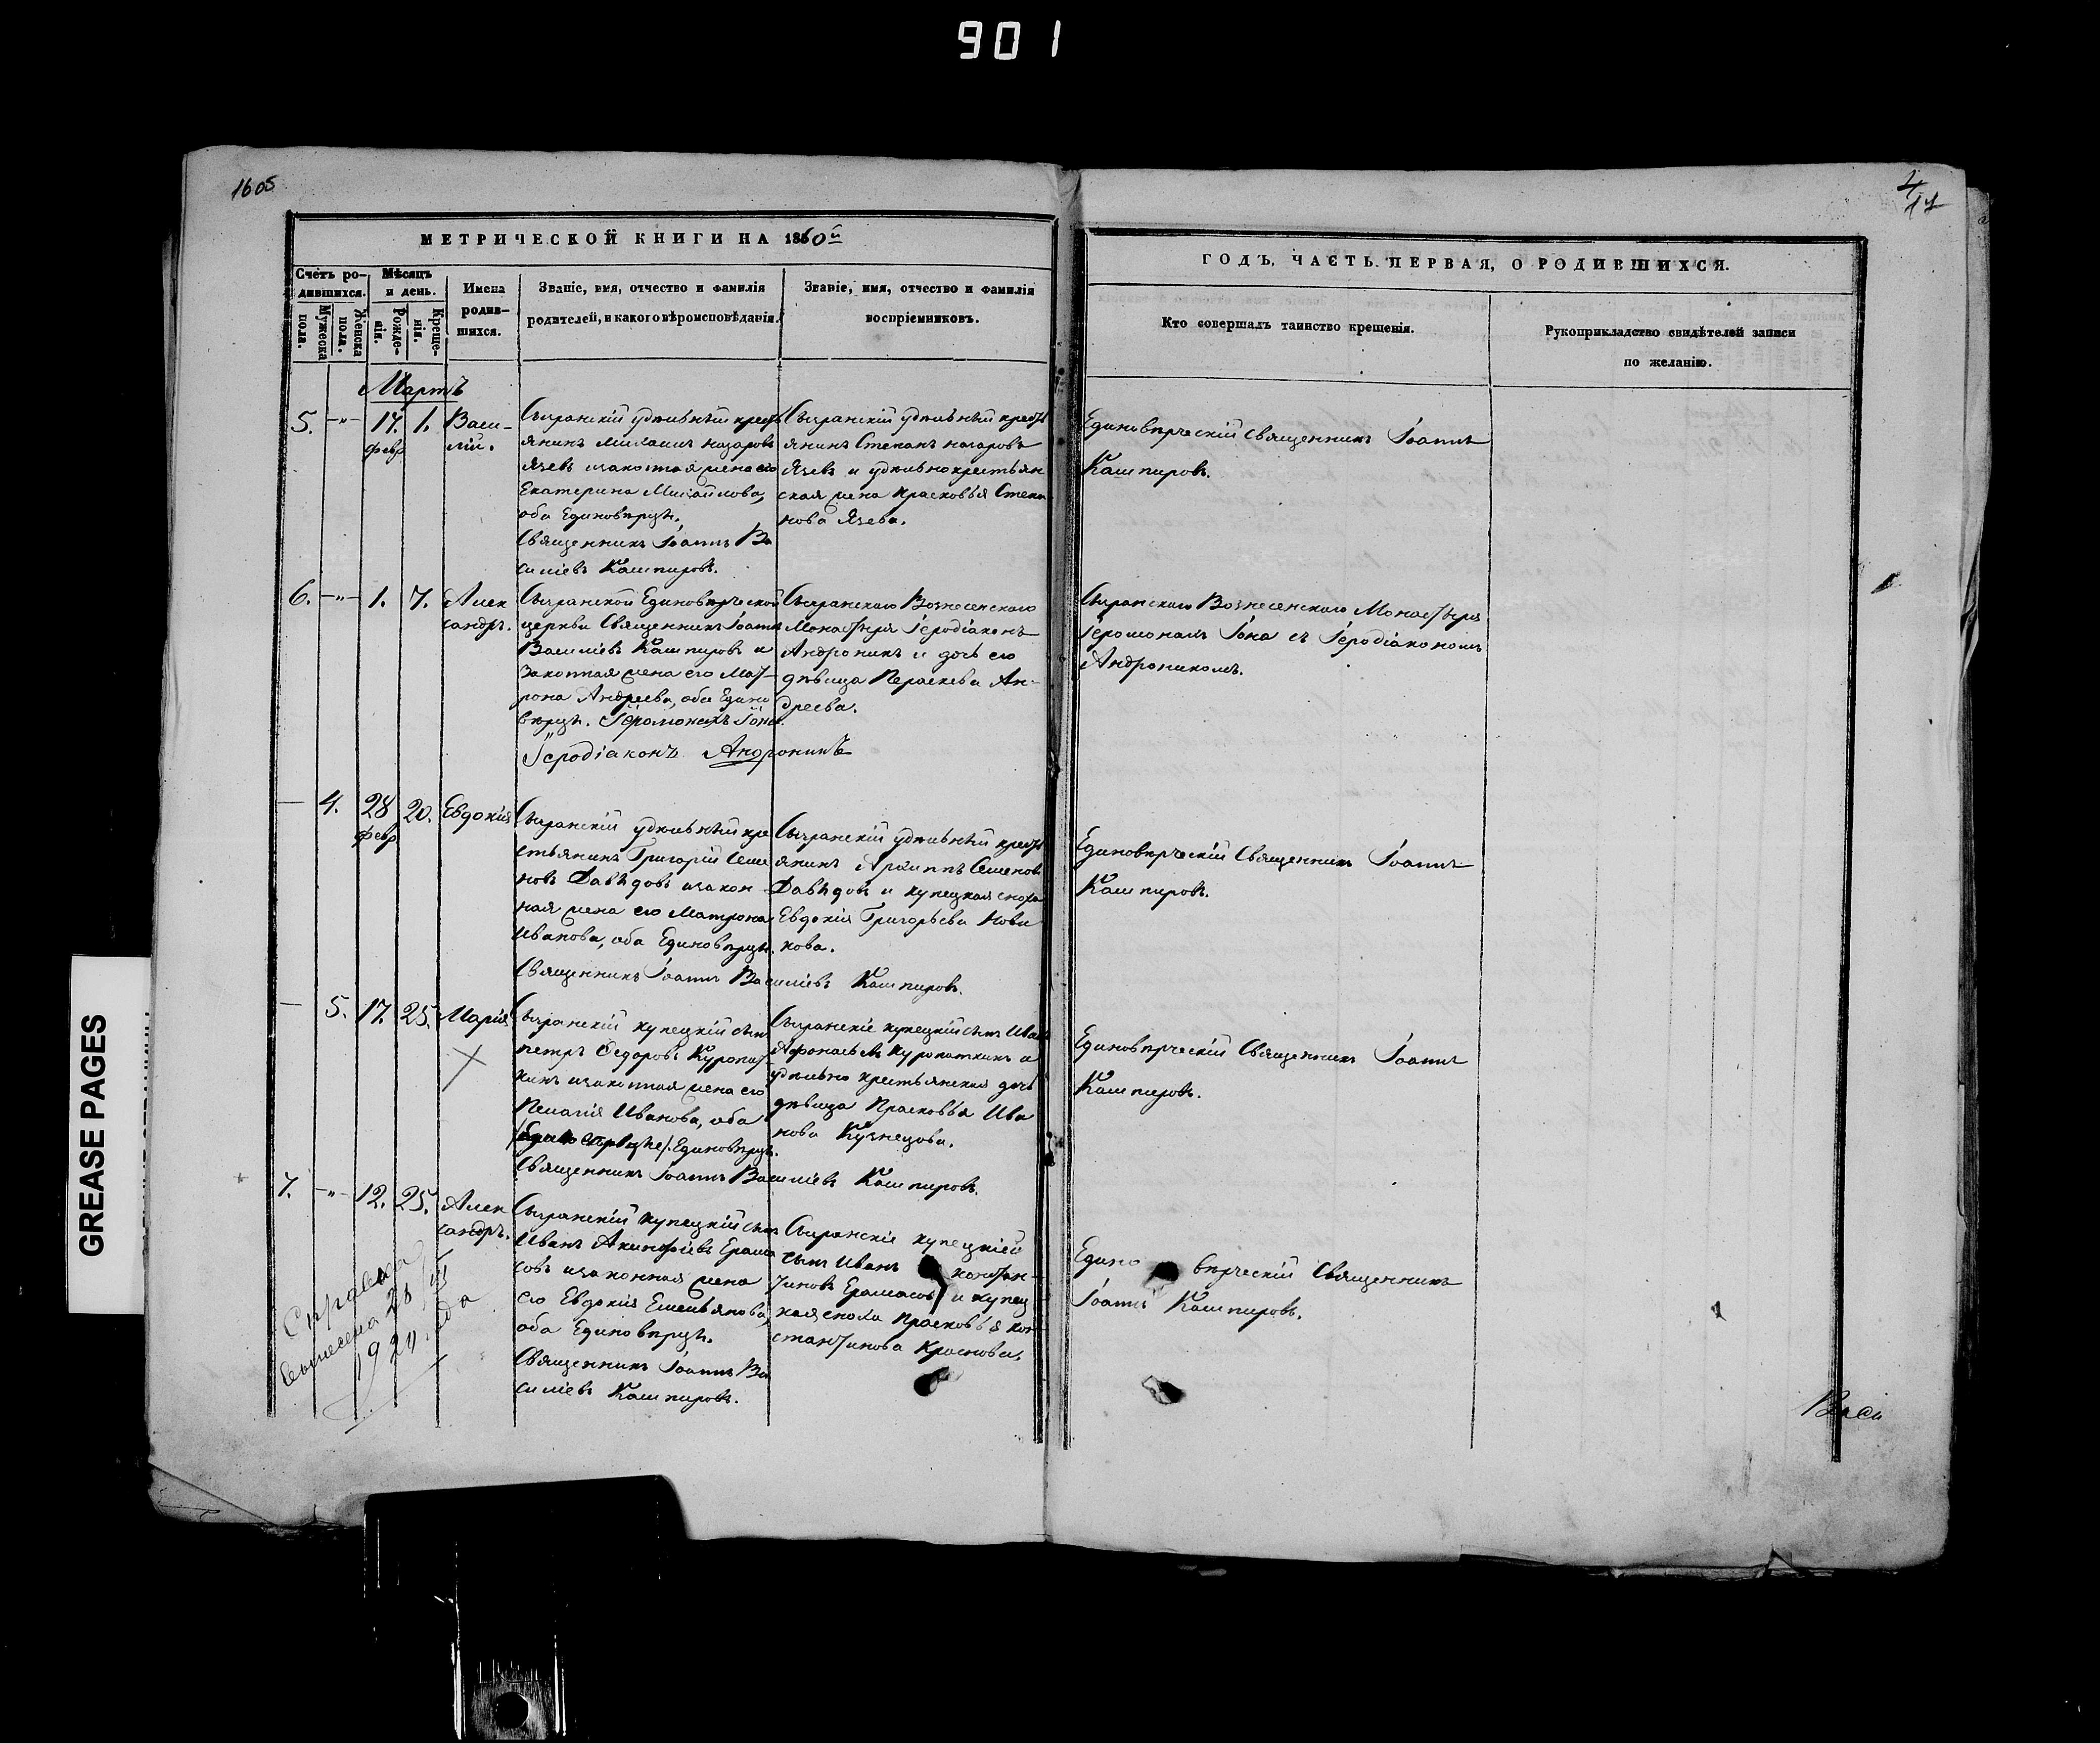 901
1605
4
17
МЕТРИЧЕСКОЙ КНИГИ НА 1860й
ГОДЪ, ЧАСТЬ ПЕРВАЯ, О РОДИВШИХСЯ.
Счетъ ро-
дившихся.
Мужеска
пола.
Женска
пола.
Мѣсяцъ
и день.
Рожде-
нія.
Креще-
нія.
Имена
родив-
шихся.
Званіе, имя, отчество и фамилія
родителей, и какого вѣроисповѣданія.
Званіе, имя, отчество и фамилія
воспріемниковъ.
Кто совершалъ таинство крещенія.
Рукоприкладство свидѣтелей записи
по желанію.
Мартъ
5. -"- 17. февр 1. Васи-
лій.
Сызранскій удѣльный кресть
янинъ Михаилъ Назаровъ
Язевъ изаконная жена его
Екатерина Михайлова,
оба Единовѣрцы.
Священникъ Іоаннъ Ва
силіевъ Кашпировъ.
Сызранскій удѣльный кресть
янинъ Степанъ Назаровъ
Язевъ и удѣльнокрестьян
ская жена Прасковья Степа
нова Язева.
Единовѣрческій Священникъ Іоаннъ
Кашпировъ.
6. -"- 1. 7. Алек
сандръ.
Сызранской Единовѣрческой
церкви Священникъ Іоаннъ
Василіевъ Кашпировъ и
Законная жена его Мат-
рона Андреева, оба Едино
вѣрцы. Іеромонахъ Іона.
Іеродіаконъ Андроникъ
Сызранскаго Вознесенскаго
Монастыря Іеродіаконъ
Андроникъ и дочь его
дѣвица Параскева Ан-
дреева.
Сызранскаго Вознесенскаго Монастыря
Іеромонахъ Іона съ Іеродіакономъ
Андроникомъ.
— 4. 28 февр 20. Евдокія
Сызранскій удѣльный кре
стьянинъ Григорій Семе
новъ Давыдовъ изакон
ная жена его Матрона
Иванова, оба Единовѣрцы.
Священникъ Іоаннъ Василіевъ Кашпировъ.
Сызранскій удѣльный кресть
янинъ Архиппъ Семеновъ
Давыдовъ и купецкая сноха
Евдокія Григорьева Нови
кова.
Единовѣрческій Священникъ Іоаннъ
Кашпировъ.
— 5. 17. 25. Марія
Сызранскій купецкій сынъ
Петръ Федоровъ Куропат
кинъ изаконная жена его
Пелагія Иванова, оба
Единовѣрцы.
Священникъ Іоаннъ Василіевъ Кашпировъ.
Сызранскіе купецкій сынъ Иванъ
Афонасьевъ Куропаткинъ и
удѣльно крестьянская дочь
дѣвица Прасковья Ива
нова Кузнецова.
Единовѣрческій Священникъ Іоаннъ
Кашпировъ.
7. -"- 12. 25. Алек
сандръ.
Сызранскій купецкій сынъ
Иванъ Акинфіевъ Ерама
совъ изаконная жена
его Евдокія Емельянова,
оба Единовѣрцы.
Священникъ Іоаннъ Ва
силіевъ Кашпировъ.
Сызранскіе купецкіей
сынъ Иванъ Констан-
тиновъ Ерамасовъ и купец
кая сноха Прасковья Кон-
стантинова Краснова.
Единовѣрческій Священникъ
Іоаннъ Кашпировъ.
Справка
1920 года
GREASE PAGES